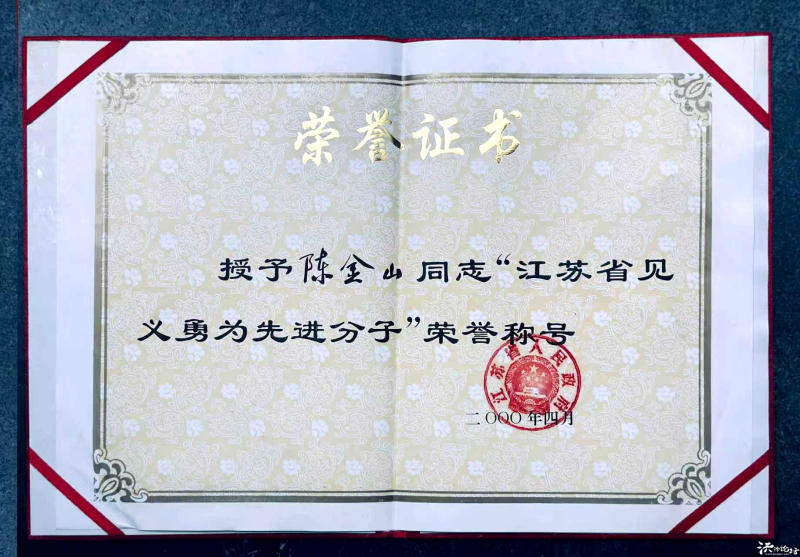 荣誉证书
授予陈金山同志“江苏省见
义勇为先进分子”荣誉称号
江苏省人民政府
二〇〇〇年四月